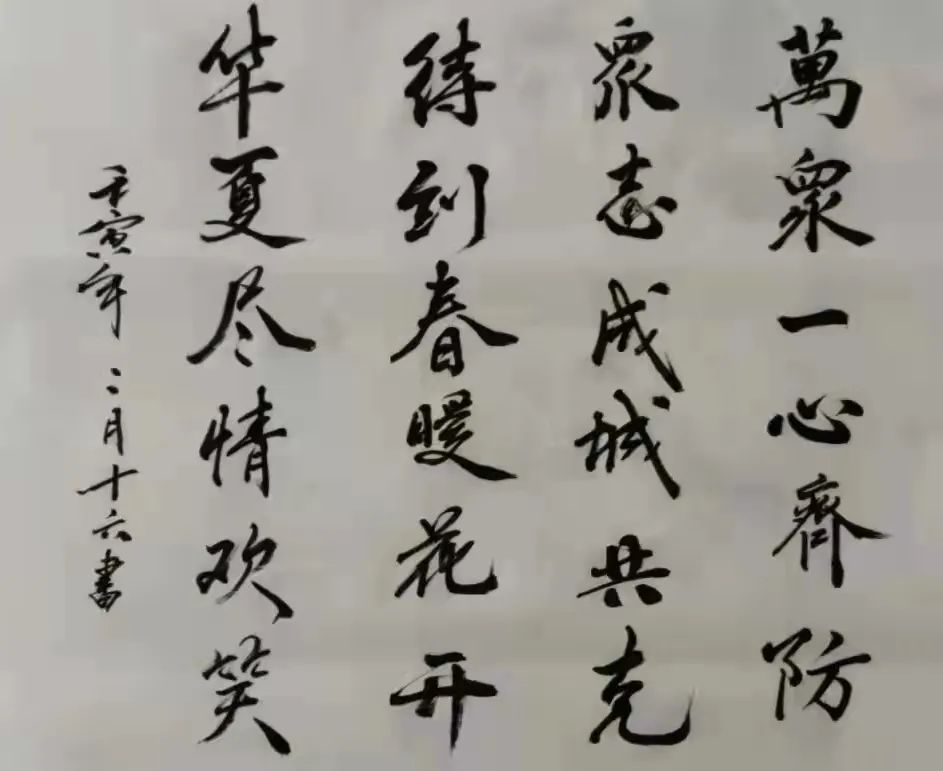 萬眾一心齊防
眾志成城共克
待到春暖花开
华夏尽情欢笑
壬寅年二月十六書